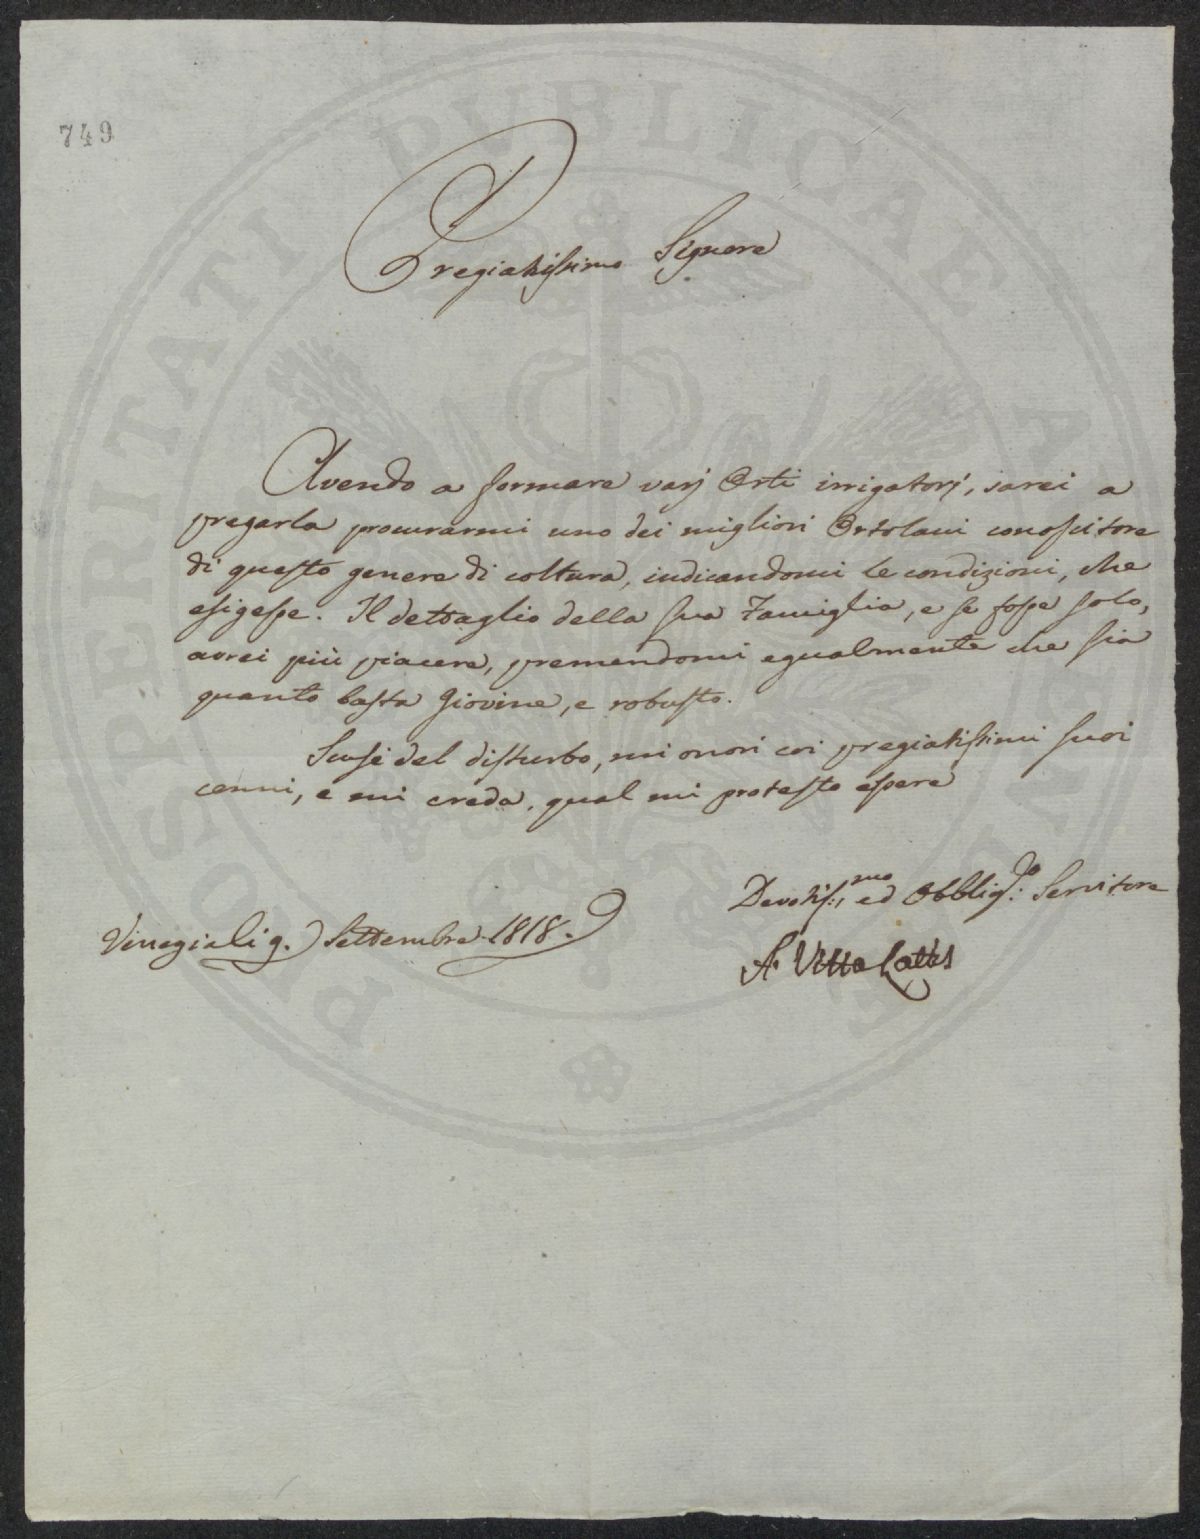 749
Pregiatissimo Signore
Avendo a formare varj Orti irrigatorj, sarei a
pregarla procurarmi uno dei migliori Ortolani conoscitore
di questo genere di coltura, indicandomi le condizioni, che
esigesse. Il dettaglio della sua Famiglia, e se fosse solo,
avrei più piacere, premendomi egualmente che sia
quanto basta Giovine, e robusto.
Scusi del disturbo, mi onori coi pregiatissimi suoi
cenni, e mi creda, qual mi protesto essere
Devotiss:mo ed Obblig:to Servitore
Venezia li 9. Settembre 1818.
A. Vitta Cattis
PROSPERITATI PUBLICAE AUGENDAE